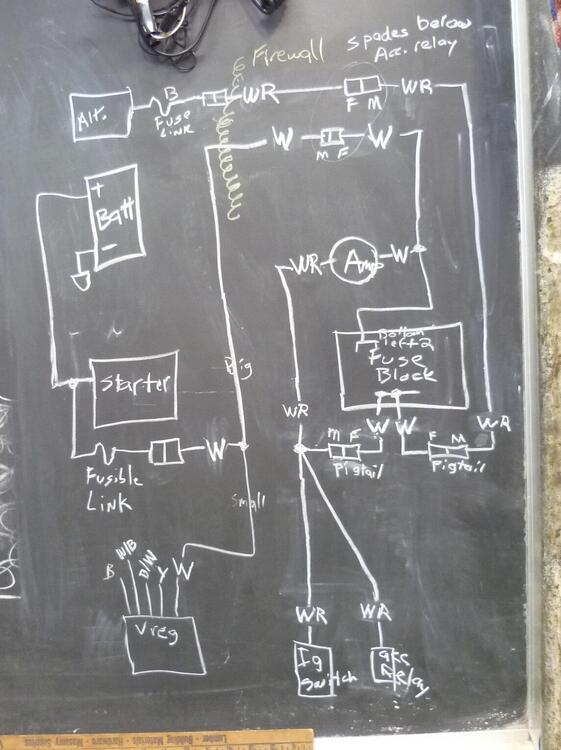 Firewall
Spades below
Acc. relay
Alt.
B
Fuse
Link
WR
F M
WR
W
M F
W
+
Batt
-
WR
Amp
W
Bottom
left 2
Fuse
Block
Starter
Big
WR
W W
WR
M F
F M
Pigtail
Pigtail
W
Fusible
Link
Small
B
W/B
B/W
Y
W
Vreg
WR
WR
Ig
Switch
acc
Relay
Lumber - Building Materials - Hardware - Masonry Supplies